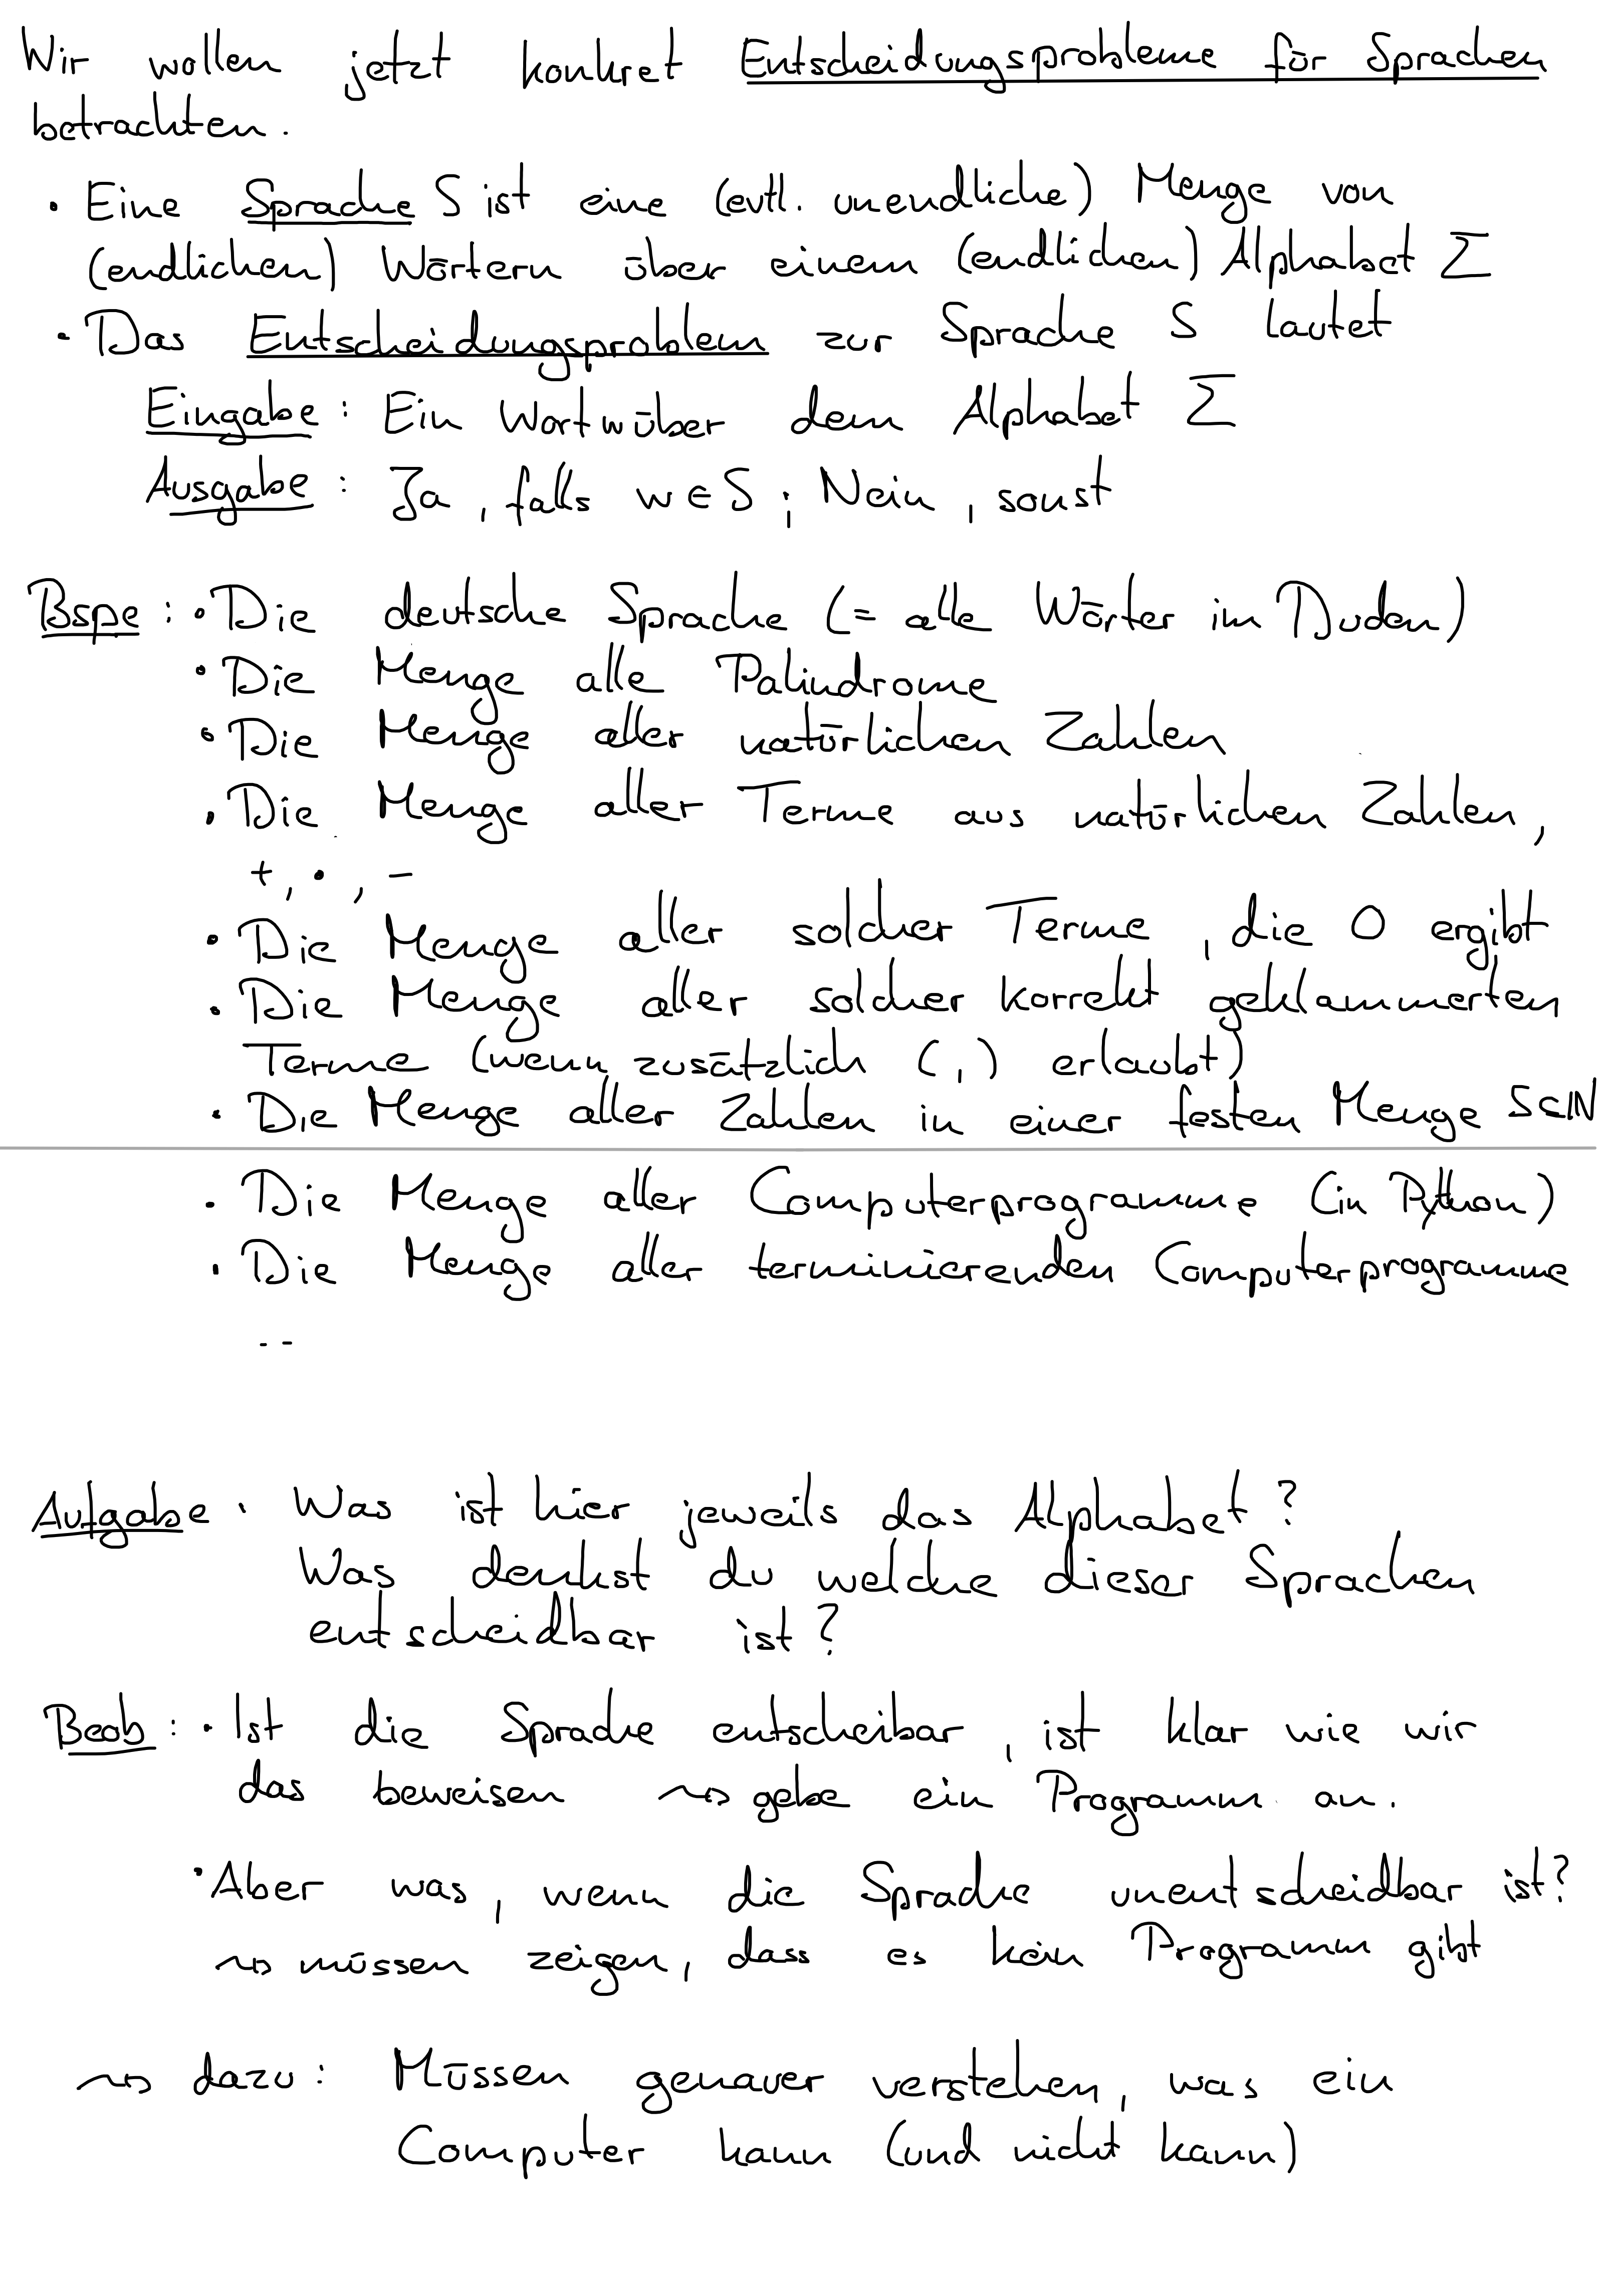 Wir wollen jetzt konkret Entscheidungsprobleme für Sprachen
betrachten.
• Eine Sprache S ist eine (evtl. unendliche) Menge von
(endlichen) Wörtern über einem (endlichen) Alphabet Σ
• Das Entscheidungsproblem zur Sprache S lautet
Eingabe: Ein Wort w über dem Alphabet Σ
Ausgabe: Ja, falls w ∈ S; Nein, sonst
Bspe: • Die deutsche Sprache (= alle Wörter im Duden)
• Die Menge alle Palindrome
• Die Menge aller natürlichen Zahlen
• Die Menge aller Terme aus natürlichen Zahlen,
+, •, -
• Die Menge aller solcher Terme, die 0 ergibt
• Die Menge aller solcher korrekt geklammerten
Terme (wenn zusätzlich (,) erlaubt)
• Die Menge aller Zahlen in einer festen Menge S⊂ℕ
• Die Menge aller Computerprogramme (in Python)
• Die Menge aller terminierenden Computerprogramme
--
Aufgabe • Was ist hier jeweils das Alphabet?
Was denkst du welche dieser Sprachen
entscheidbar ist?
Beob: • Ist die Sprache entscheibar, ist klar wie wir
das beweisen ⇝ gebe ein Programm an.
• Aber was, wenn die Sprache unentscheidbar ist?
⇝ müssen zeigen, dass es kein Programm gibt
⇝ dazu: Müssen genauer verstehen, was ein
Computer kann (und nicht kann)